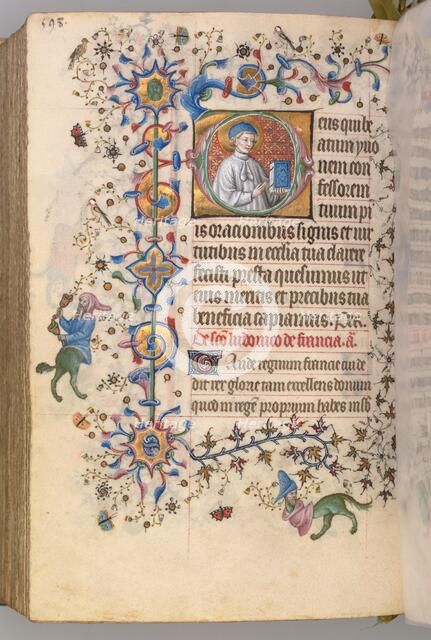 598.
eus qui be
atum yuo
nem con
fessorem
tuum pi
is oracionibus signis et uir
tutibus in ecclia tua clarere
fecisti presta quesumus ut
eius meritis et precibus tua
beneficia capiamus. Per.
De sco ludouico de francia. a.
Gaude regnum francie cui de
dit rex glorie tam excellens donum
quod in regē proprium habes